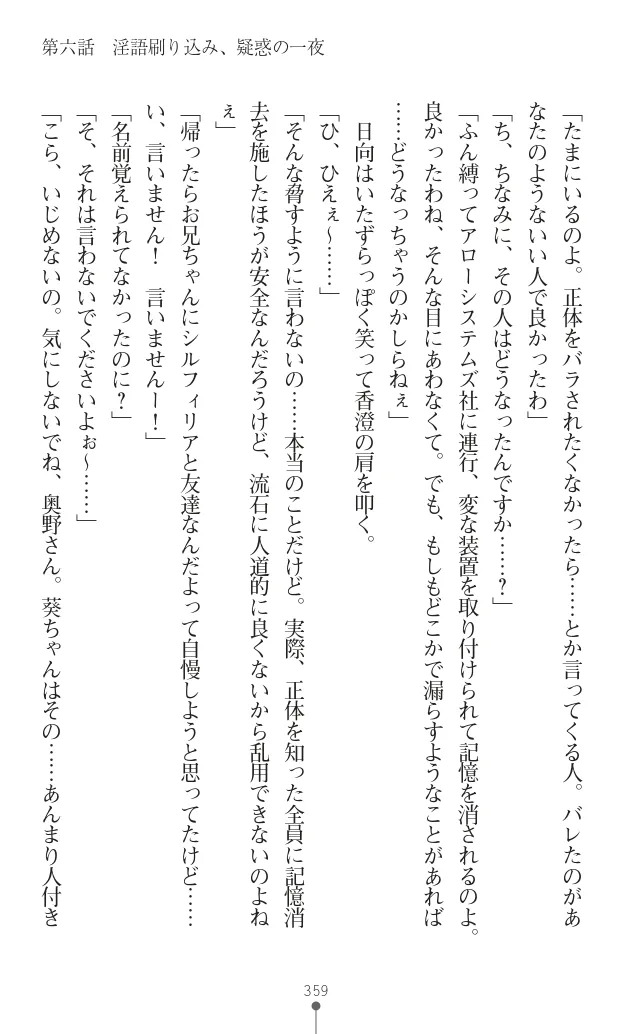 第六話　淫語刷り込み、疑惑の一夜
「たまにいるのよ。正体をバラされたくなかったら……とか言ってくる人。バレたのがあ
なたのようないい人で良かったわ」
「ち、ちなみに、その人はどうなったんですか……？」
「ふん縛ってアローシステムズ社に連行、変な装置を取り付けられて記憶を消されるのよ。
良かったわね、そんな目にあわなくて。でも、もしもどこかで漏らすようなことがあれば
……どうなっちゃうのかしらねぇ」
　日向はいたずらっぽく笑って香澄の肩を叩く。
「ひ、ひえぇ〜……」
「そんな脅すように言わないの……本当のことだけど。実際、正体を知った全員に記憶消
去を施したほうが安全なんだろうけど、流石に人道的に良くないから乱用できないのよね
ぇ」
「帰ったらお兄ちゃんにシルフィリアと友達なんだよって自慢しようと思ってたけど……
い、言いません！　言いませんー！」
「名前覚えられてなかったのに？」
「そ、それは言わないでくださいよぉ〜……」
「こら、いじめないの。気にしないでね、奥野さん。葵ちゃんはその……あんまり人付き
359